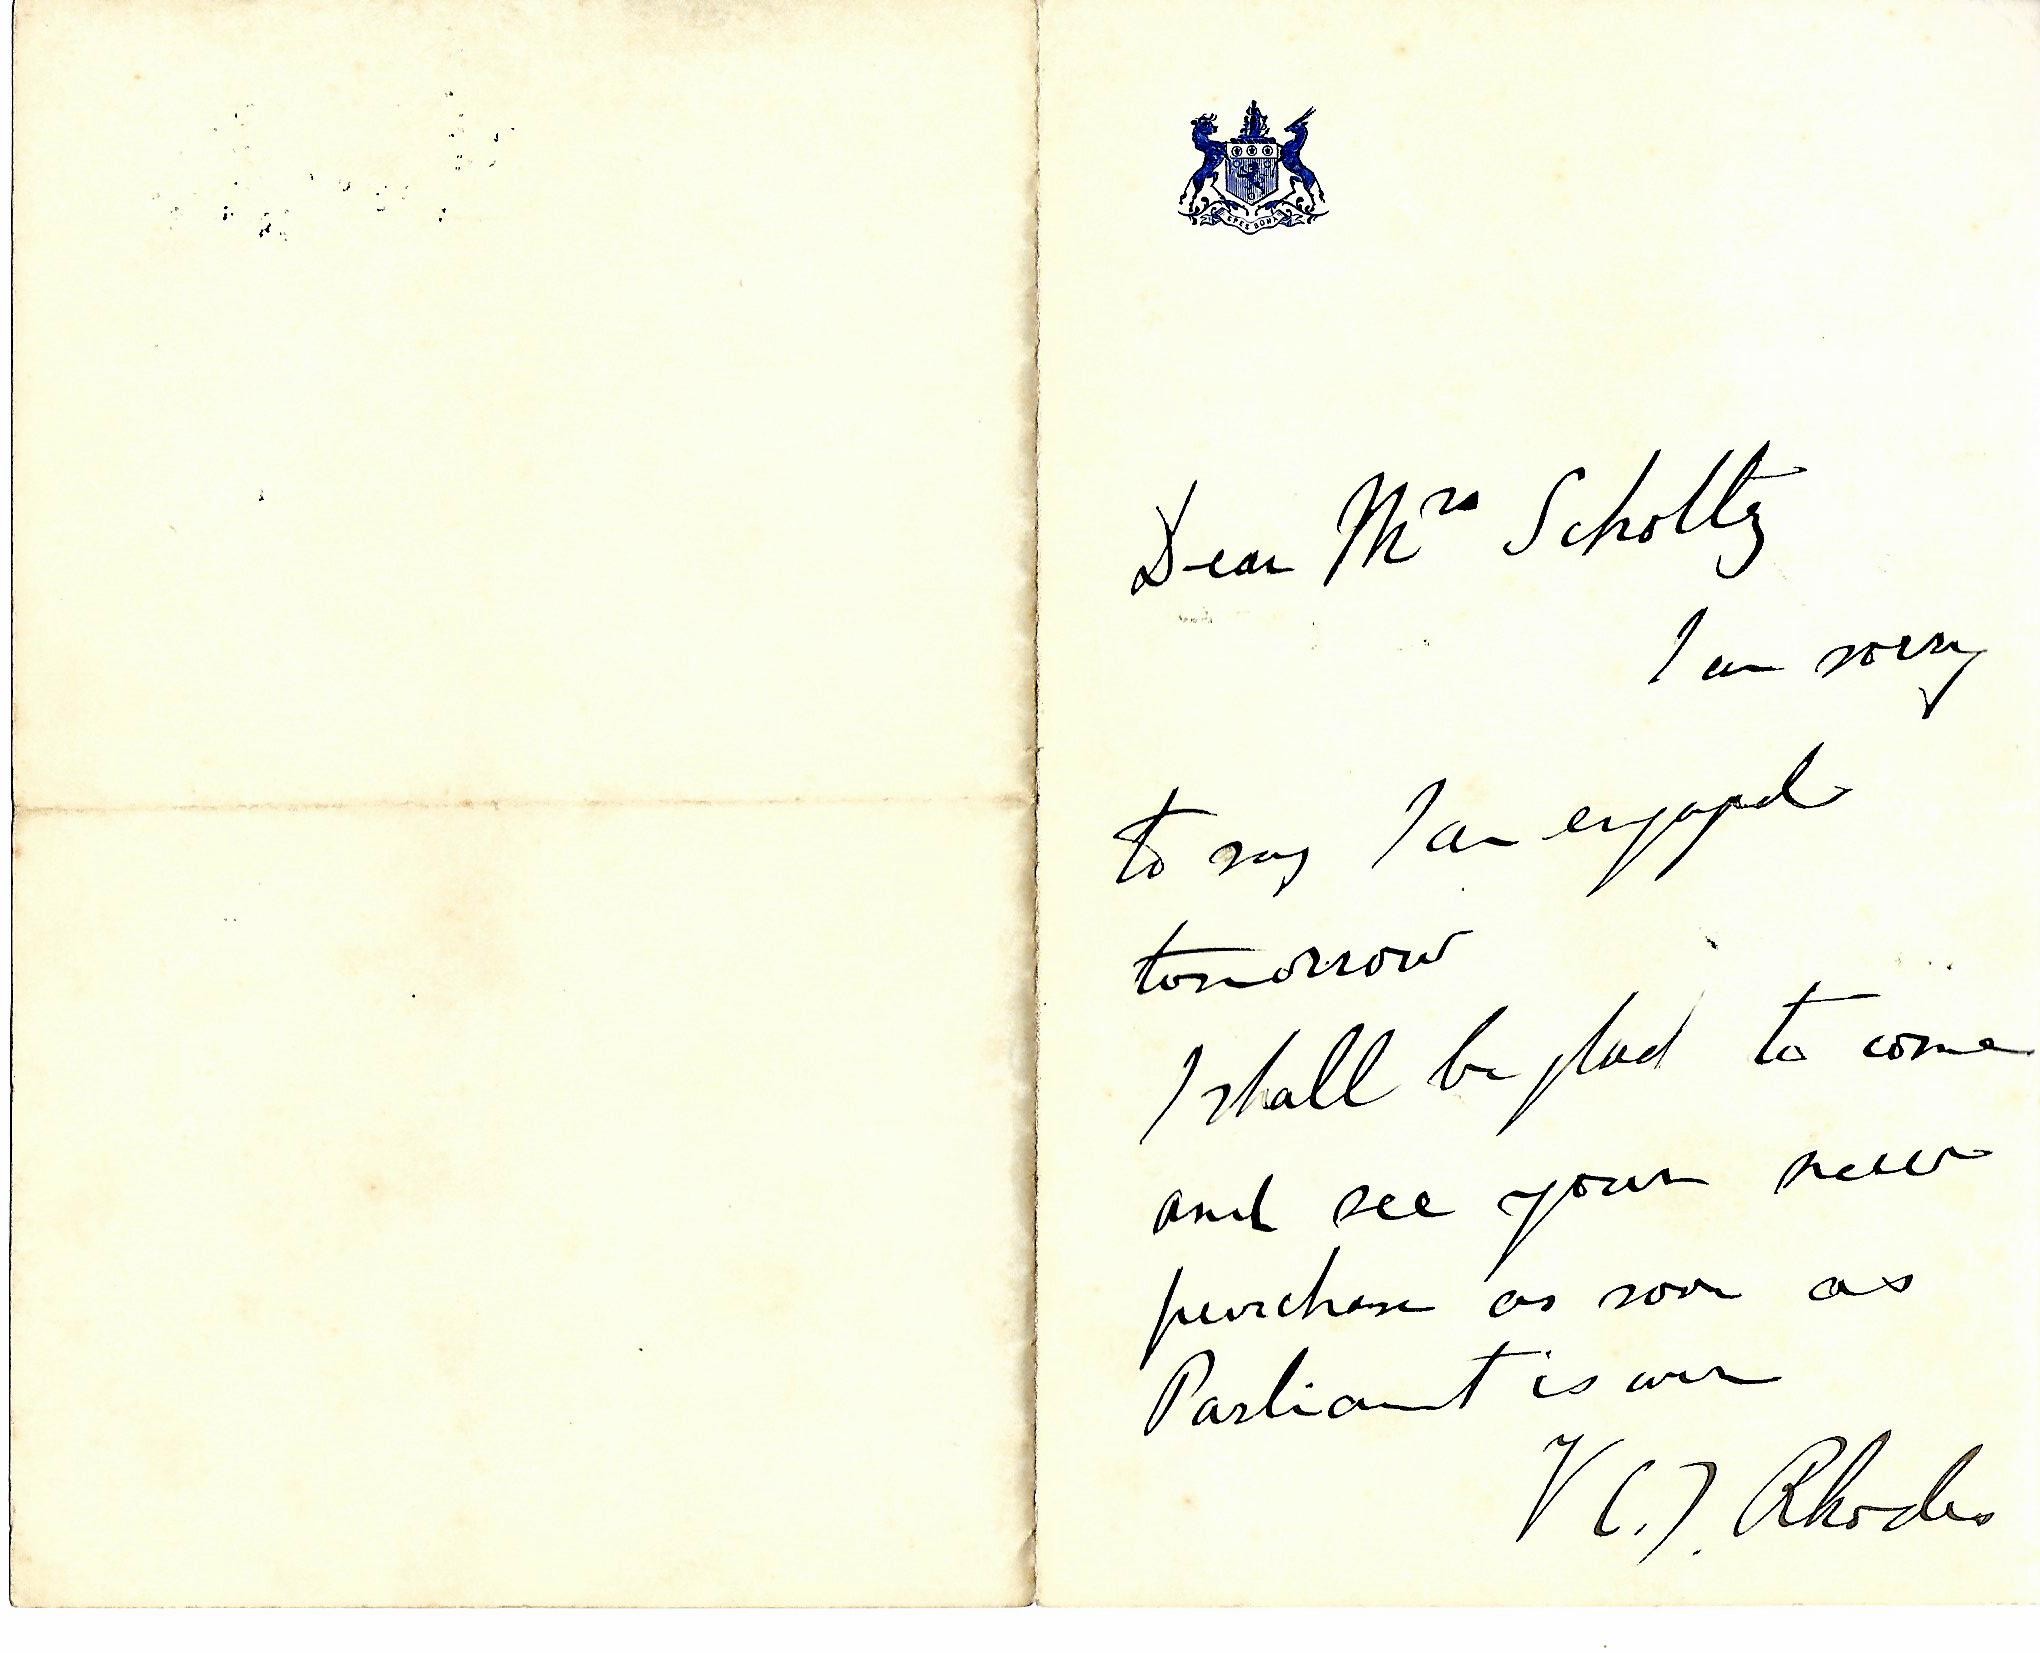 SPES BONA
Dear Mrs Scholtz
I am sorry
to say I am engaged
tomorrow
I shall be glad to come
and see your new
purchase as soon as
Parliament is over
Y C. J. Rhodes